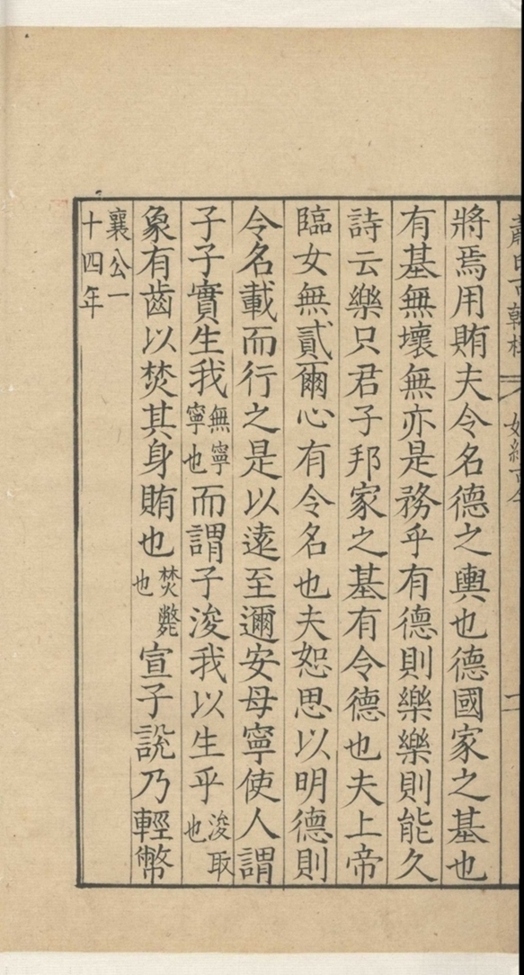 將焉用賄夫令名德之輿也德國家之基也
有基無壞無亦是務乎有德則樂樂則能久
詩云樂只君子邦家之基有令德也夫上帝
臨女無貳爾心有令名也夫恕思以明德則
令名載而行之是以遠至邇安母寧使人謂
子子實生我無寧寧也而謂子浚我以生乎浚取也
象有齒以焚其身賄也焚斃也宣子說乃輕幣
襄公一十四年